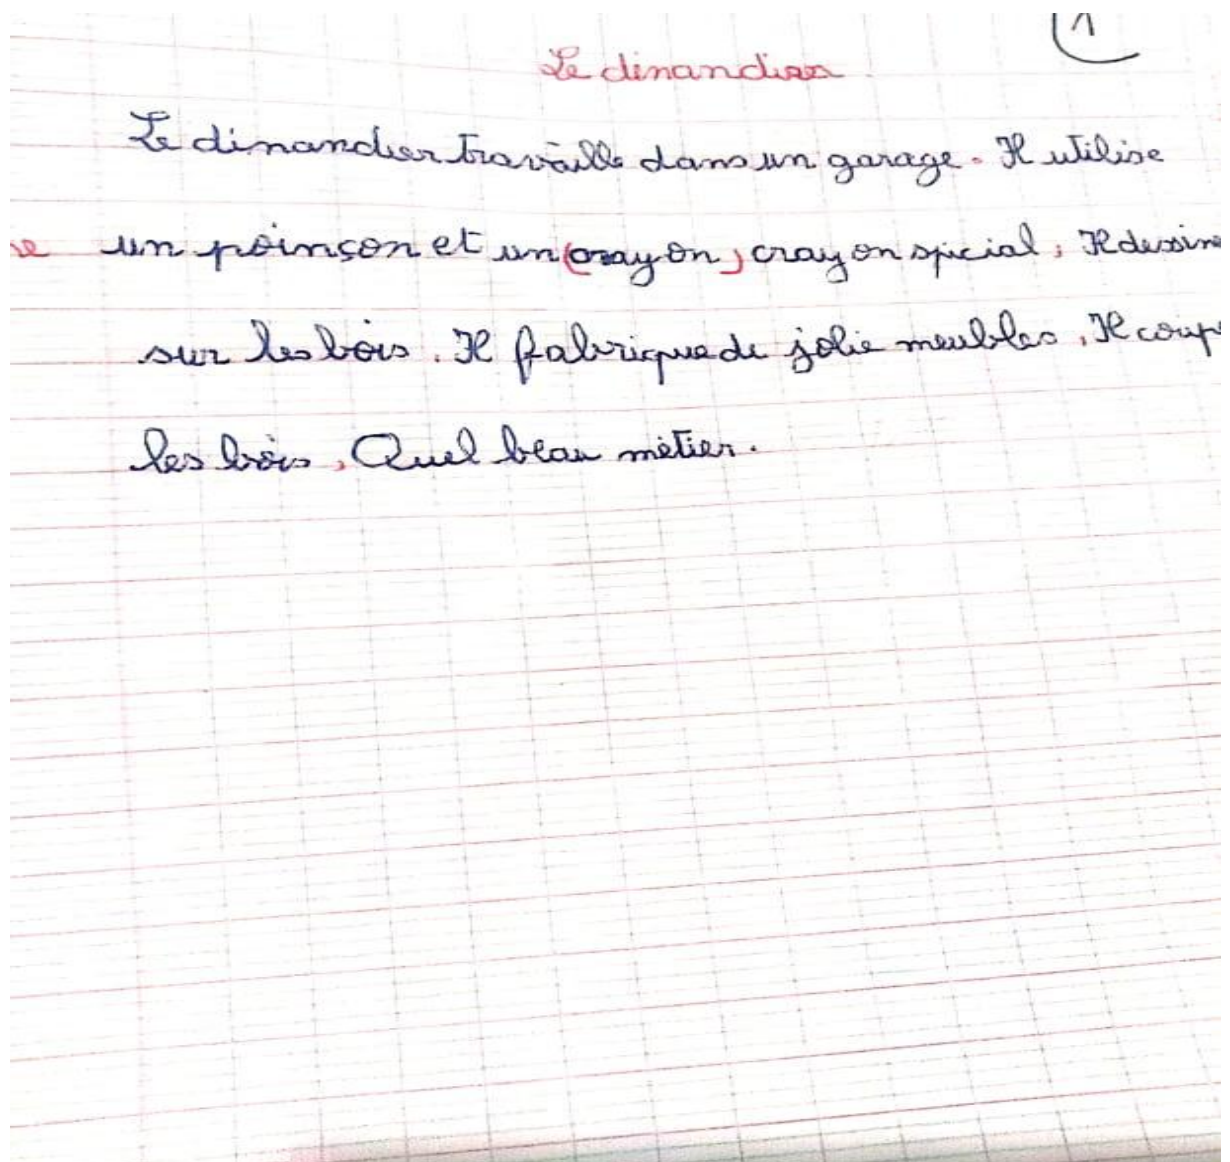 1
Le dinandier
Le dinandier travaille dans un garage. Il utilise
un poinçon et un (crayon) crayon spécial, Il dessine
sur les bois. Il fabrique de jolie meubles. Il coupe
les bois, Quel beau métier.